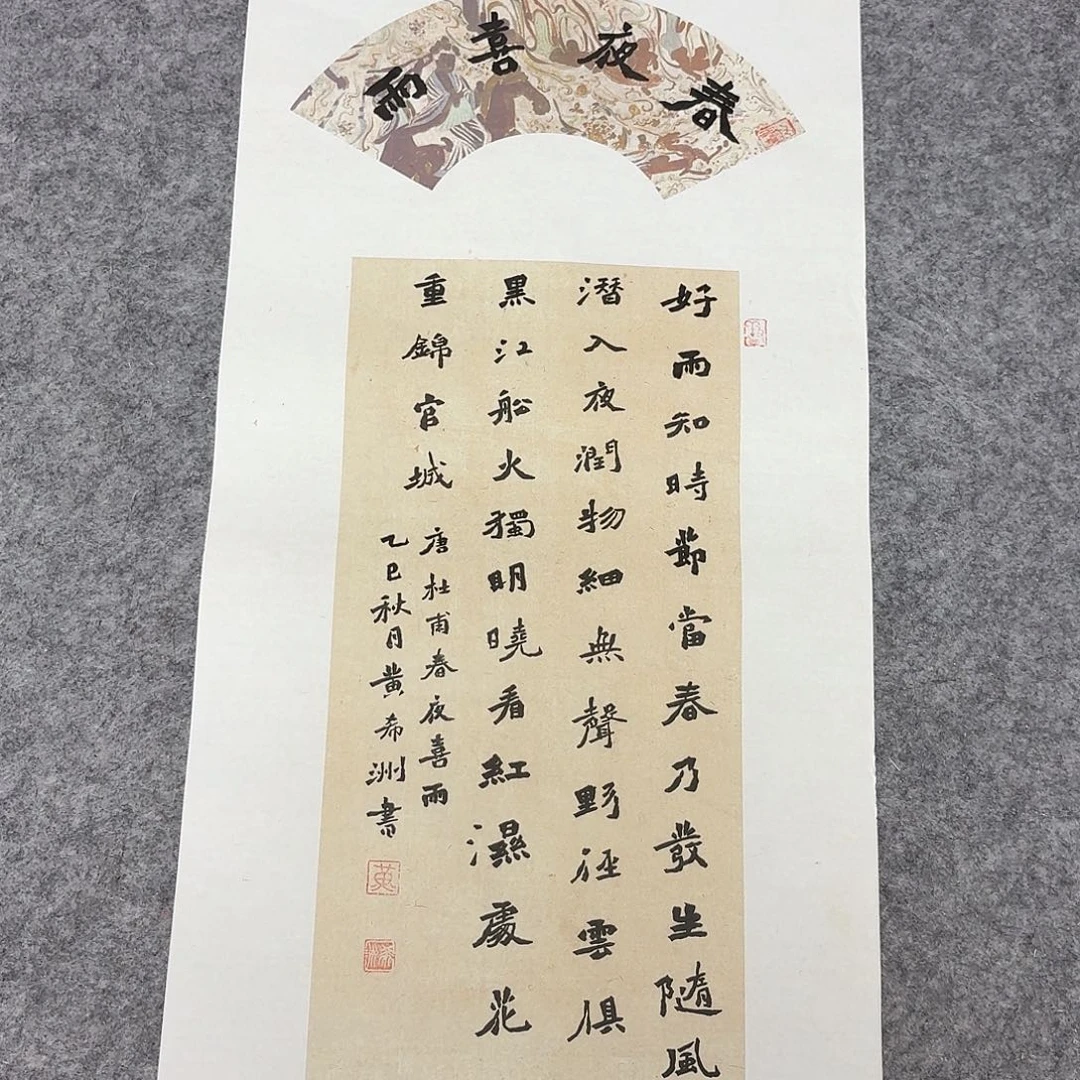 春夜喜雨
好雨知時節當春乃發生隨風
潛入夜潤物細無聲野徑雲俱
黑江船火獨明曉看紅濕處花
重錦官城
唐杜甫春夜喜雨
乙巳秋月黄希洲書
黄